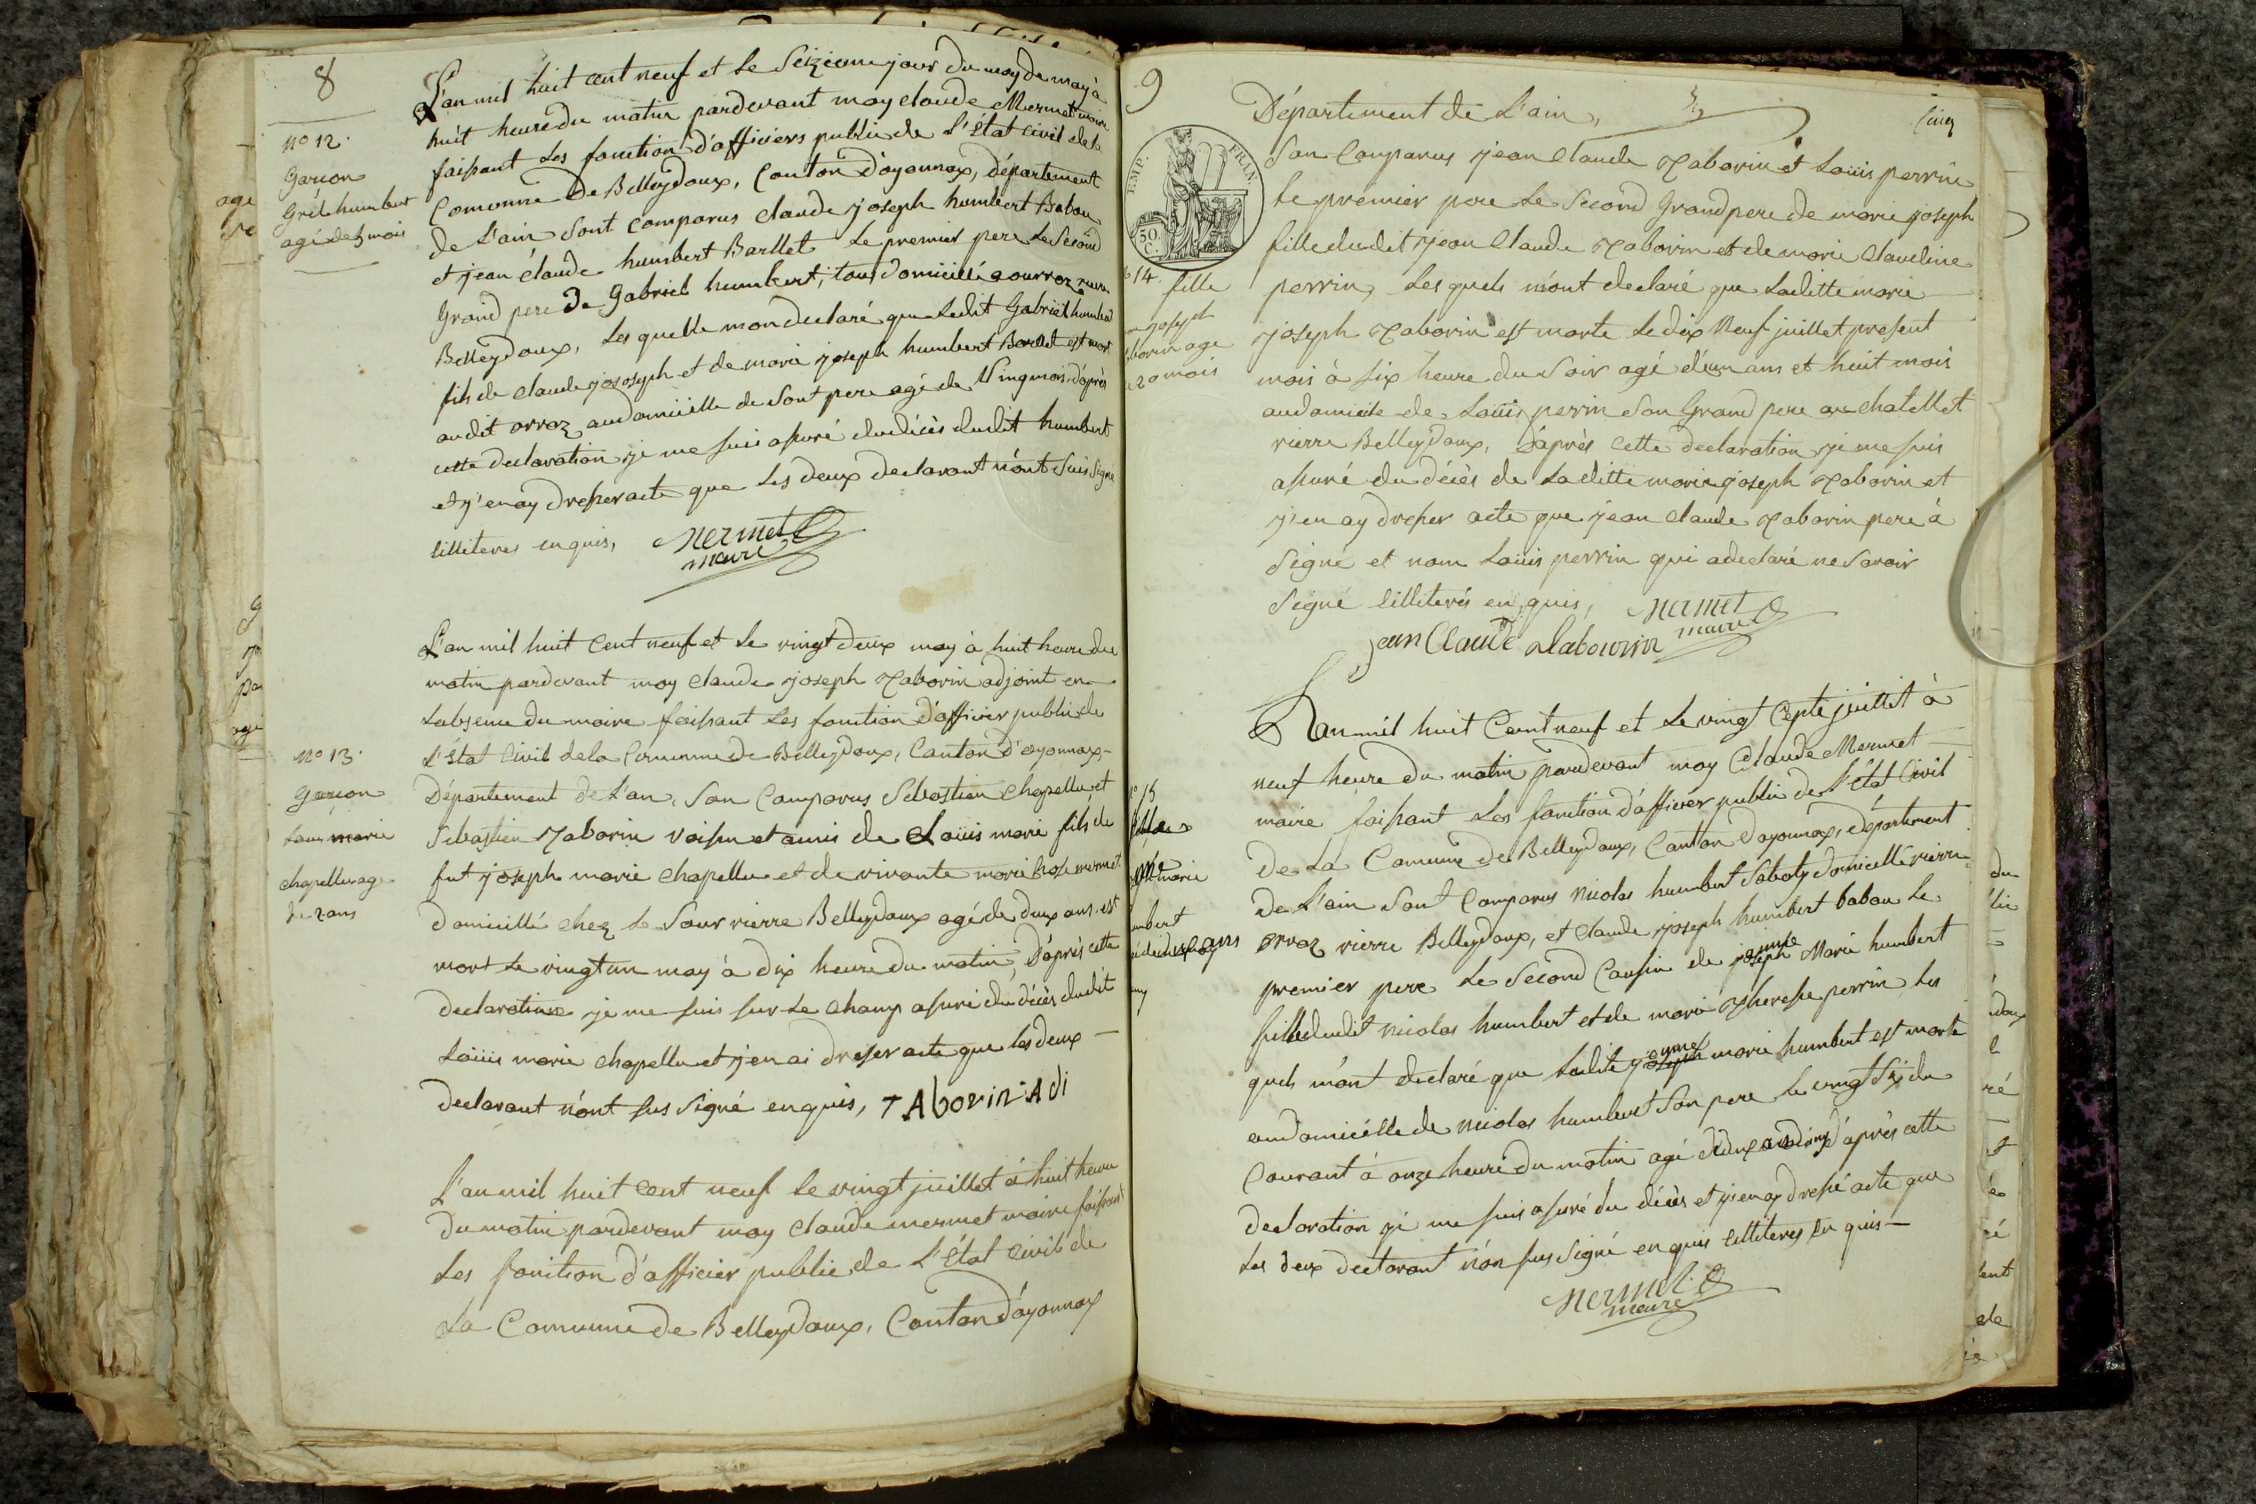 8
L'an mil huit cent neuf et le Seizieme jour du moy de may à
huit heure du matin pardevant moy claude Mermet maire
faisant les fonction d'officiers public de L'État Civil de la
Comunne De Belleydoux, Canton d'oyonnax, département
de L'ain Sont comparus claude joseph humbert Babou
et jean claude humbert Barllet Le premier pere Le Second
Grand pere De Gabriel humbert, tous domicillié a orvoz
Belleydoux, Les quelle mon declaré que Ledit Gabriel humbert
fils de claude josoph et de marie joseph humbert Barllet est mort
audit orvoz au domicille de Sont pere agé de Cinq mois, d'après
cette declaration je me suis asuré du décès dudit humbert
et j'en ay dresser acte que Les deux declarant n'ont Suis Signe
Lilliteres enquis,
Mermet
maire
no 12.
Garcon
Gril humbert
agé de 5 mois
L'an mil huit Cent neuf et le vingt deux may à huit heure du
matin pardevant moy claude joseph Taborin adjoint en
Labsence du maire faisant Les fonction d'officier public de
L'État Civil de la Comunne de Belleydoux, Canton d'oyonnax
Département de L'an, Son Comparus Sebastien chapellu et
Sebastien Taborin voisin et amis de Loüis marie fils de
fut joseph marie chapellu et de vivante marie Roze mermet
domicillié chez Le Sour vierre Belleydoux agé de deux ans est
mort Le vingt un may à dix heure du matin, D'après cette
declaration je me suis sur Le champ asuré du décès dudit
Loüis marie chapellu et j'en ai dresser acte que les deux
declarant n'ont sus signé enquis, TAborin Adi
no 13.
Garcon
Louis marie
chapellu age
de 2 ans
L'an mil huit cent neuf Le vingt juillet à huit heure
du matin pardevant moy claude mermet maire faisant
Les fonition d'officier public de L'État Civil de
La Comunne de Belleydoux, Canton d'oyonnax
9
Cinq
Département de L'ain,
EMP. FRAN.
50 C.
Son Comparus jean Claude Taborin et Loüis perrin
Le premier pere Le Second Grand pere de marie joseph
fille dudit jean Claude Taborin et de marie Claudine
perrin, Les quels m'ont declaré que Laditte marie
joseph Taborin est morte Le dix Neuf juillet present
mois à six heure du Soir agé d'un ans et huit mois
au domicile de Loüis perrin Son Grand pere au chatellet
vierre Belleydoux, D'après cette declaration je me suis
asuré du décès de Laditte marie joseph Taborin et
j'en ay dresser acte que jean Claude Taborin pere à
Signé et nom Loüis perrin qui a declaré ne Savoir
Signé Lilliterés enquis,
Mermet
maire
jean Claude Tabourin
14. fille
joseph
borin age
20 mois
L'an mil huit Cent neuf et Le vingt Cepte juillit à
neuf heure du matin pardevant moy Claude Mermet
maire faisant Les fonition d'officier public de L'État Civil
de La Comunne de Belleydoux, Canton d'oyonnax, département
de L'ain Sont Comparus Nicolas humbert Saboty domicillié vierre
orvoz vierre Belleydoux, et Claude joseph humbert babou Le
premier pere Le Second Cousin de joseph Marie humbert
fille dudit Nicolas humbert et de marie Theresse perrin Les
quels m'ont declaré que Ladite joseph marie humbert est morte
au domicille de Nicolas humbert Son pere Le vingt Six du
Courant à onze heure du matin agé de deux ans d'après cette
declaration je me suis asuré du décès et j'en ay dressé acte que
Les deux declarant n'on sus signé enquis Lilliteres En quis
Mermet
maire
no 15
fille
marie
mbert